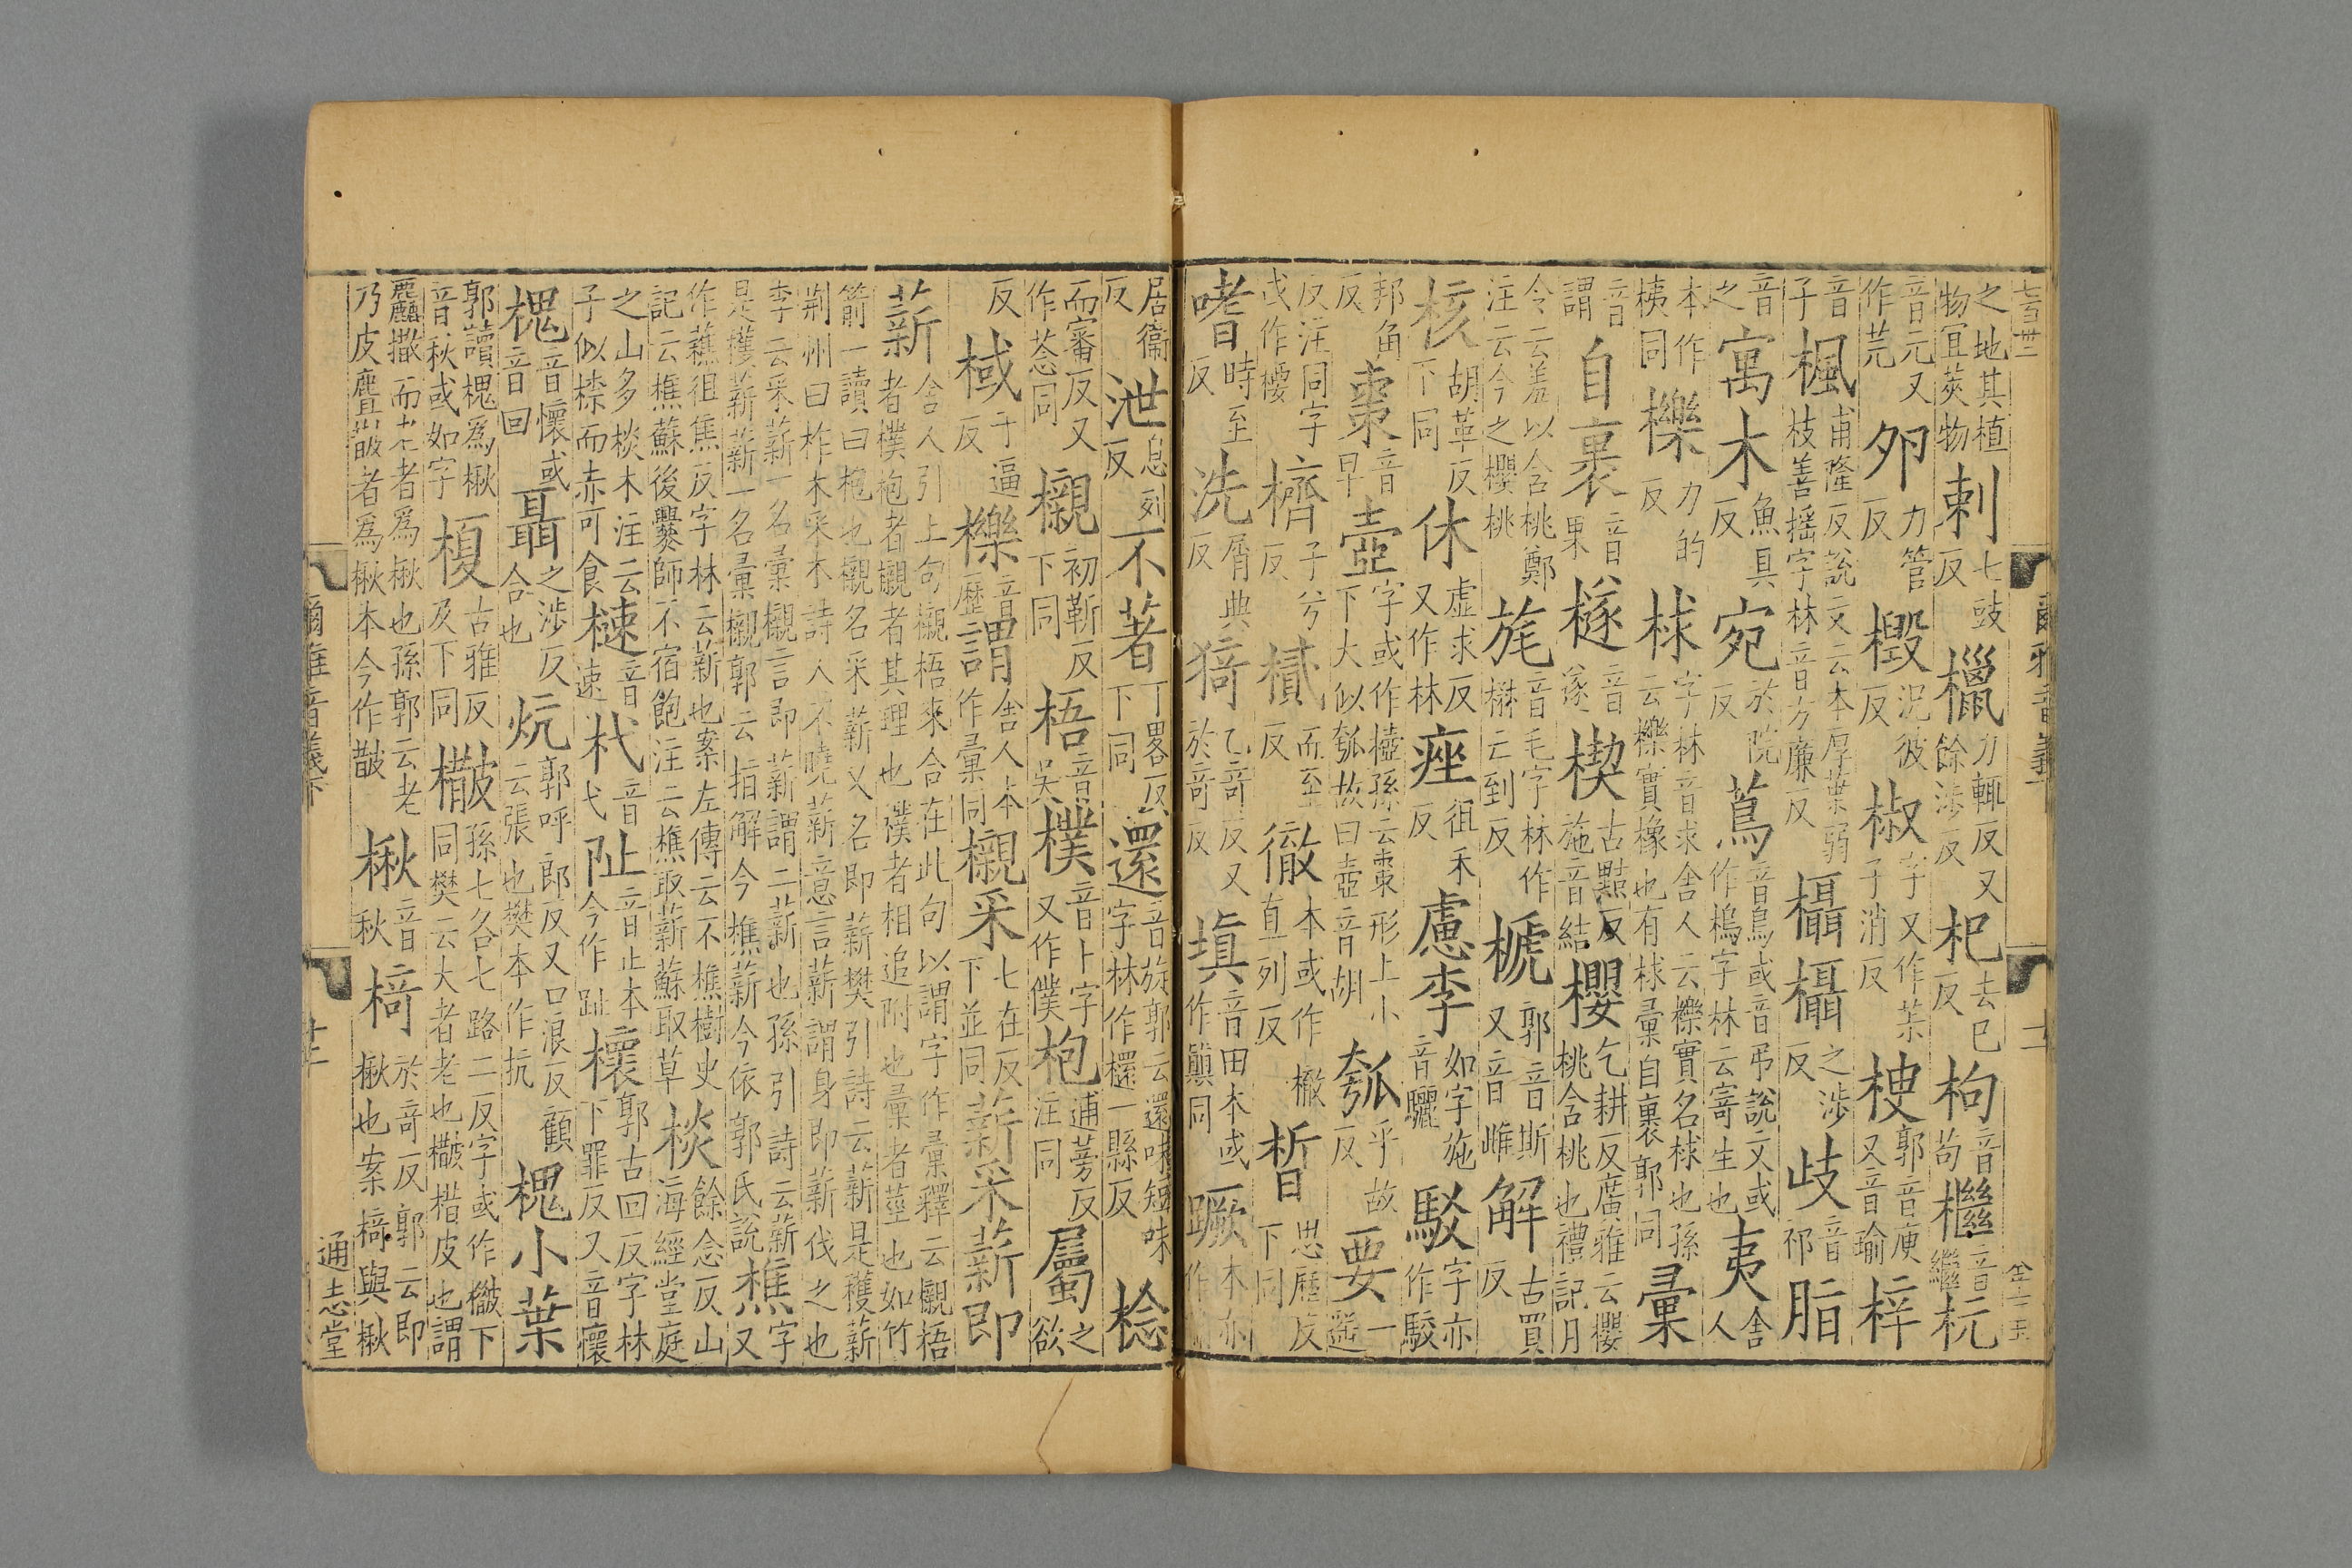 之地其植物宜莢物刺七豉反䌰力輒反又餘涉反杞去已反枸音苟檵音繼杬
音元又作芫夘力管反椴況彼反椒字又作茮子消反梗郭音庾又音瑜梓
音子楓甫隆反說文云木厚葉弱枝善搖字林音方廉反欇欇之涉反歧音祁脂
音之寓木魚具反宛於阮反蔦音鳥或音弔說文或作樢字林云寄生也夷舍人
本作桋同櫟力的反梂字林音求舍人云櫟實名梂也孫云櫟實橡也有梂彙自裹郭同彙
音謂自裹音果檖音遂楔古黠反施音結櫻乞耕反廣雅云櫻桃含桃也禮記月
令云羞以含桃鄭注云今之櫻桃旄音毛字林作楙云到反榹郭音斯又音雌解古買反
核胡革反下同休虛求反又作林痤徂禾反慮李如字施音驪駁字亦作駮
邦角反棗音早壺字或作樝孫云棗形上小下大似瓠故曰壺音胡瓠乎故反要一遥
反注同字或作㯹櫅子兮反樲而至反徹本或作㯙直列反晳思歷反下同
嗜時至反洗屑典反猗乙奇反又於奇反填音田本或作鎭同蹶本亦作
居衞反泄息列反不著丁略反下同還音旋郭云還味短味字林作檈一縣反棯
而審反又作荵同櫬初靳反下同梧音吳樸音卜字又作僕枹逋蒡反注同屬之欲
反棫于逼反櫟音歷謂舍人本作彙同櫬采七在反下並同薪采薪即
薪舍人引上句櫬梧來合在此句以謂字作彙釋云櫬梧者樸枹者櫬者其理也樸者相追附也彙者莖也如竹
箭一讀曰枹也櫬名采薪又名即薪樊引詩云薪是穫薪荆州曰柞木采木詩人不曉薪意言薪謂身即薪伐之也
李云采薪一名彙櫬言即薪謂二薪也孫引詩云薪是檴薪薪一名彙櫬郭云指解今樵薪今依郭氏說樵字又
作藮徂焦反字林云薪也案左傳云不樵樹史記云樵蘇後爨師不宿飽注云樵取薪蘇取草棪餘念反山海經堂庭
之山多棪木注云子似㮈而赤可食梀音速杙音弋阯音止本今作趾櫰郭古回反字林下罪反又音瓌
槐音懷或音回聶之涉反合也炕郭呼郎反又口浪反顧云張也樊本作抗槐小葉
郭讀槐爲楸音秋或如字榎古雅反及下同㪔㯙孫七各七路二反字或作㪚下同樊云大者老也㯙楷皮也謂
麤㯙而老者爲楸也孫郭云老乃皮麤皵者爲楸本今作皵楸音秋椅於奇反郭云即楸也案椅與楸
七百卅二
爾雅音義下
十二
金士玉
爾雅音義下
通志堂